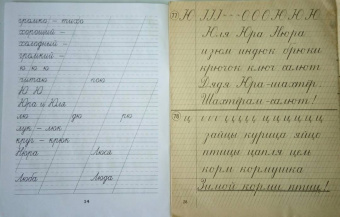 громко - тихо
хороший -
холодный -
громкий -
ю ю ю
читаю пою
Ю Ю
Юра и Юля
лю ду рю
лук - люк
круг - крюк
Юра Люся
Люба Люда
24
77 Ю
Юля Юра Нюра
изюм индюк брюки
крючок ключ салют
Дядя Юра-шахтёр.
Шахтёрам-салют!
78 ц
зайцы курица яйцо
птицы цапля цель
корм кормушка
Зимой корми птиц!